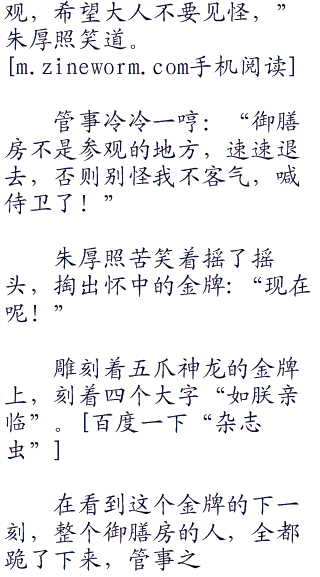 观，希望大人不要见怪，”
朱厚照笑道。
[m.zineworm.com手机阅读]
管事冷冷一哼：“御膳
房不是参观的地方，速速退
去，否则别怪我不客气，喊
侍卫了！”
朱厚照苦笑着摇了摇
头，掏出怀中的金牌：“现在
呢！”
雕刻着五爪神龙的金牌
上，刻着四个大字“如朕亲
临”。[百度一下“杂志
虫”]
在看到这个金牌的下一
刻，整个御膳房的人，全都
跪了下来，管事之